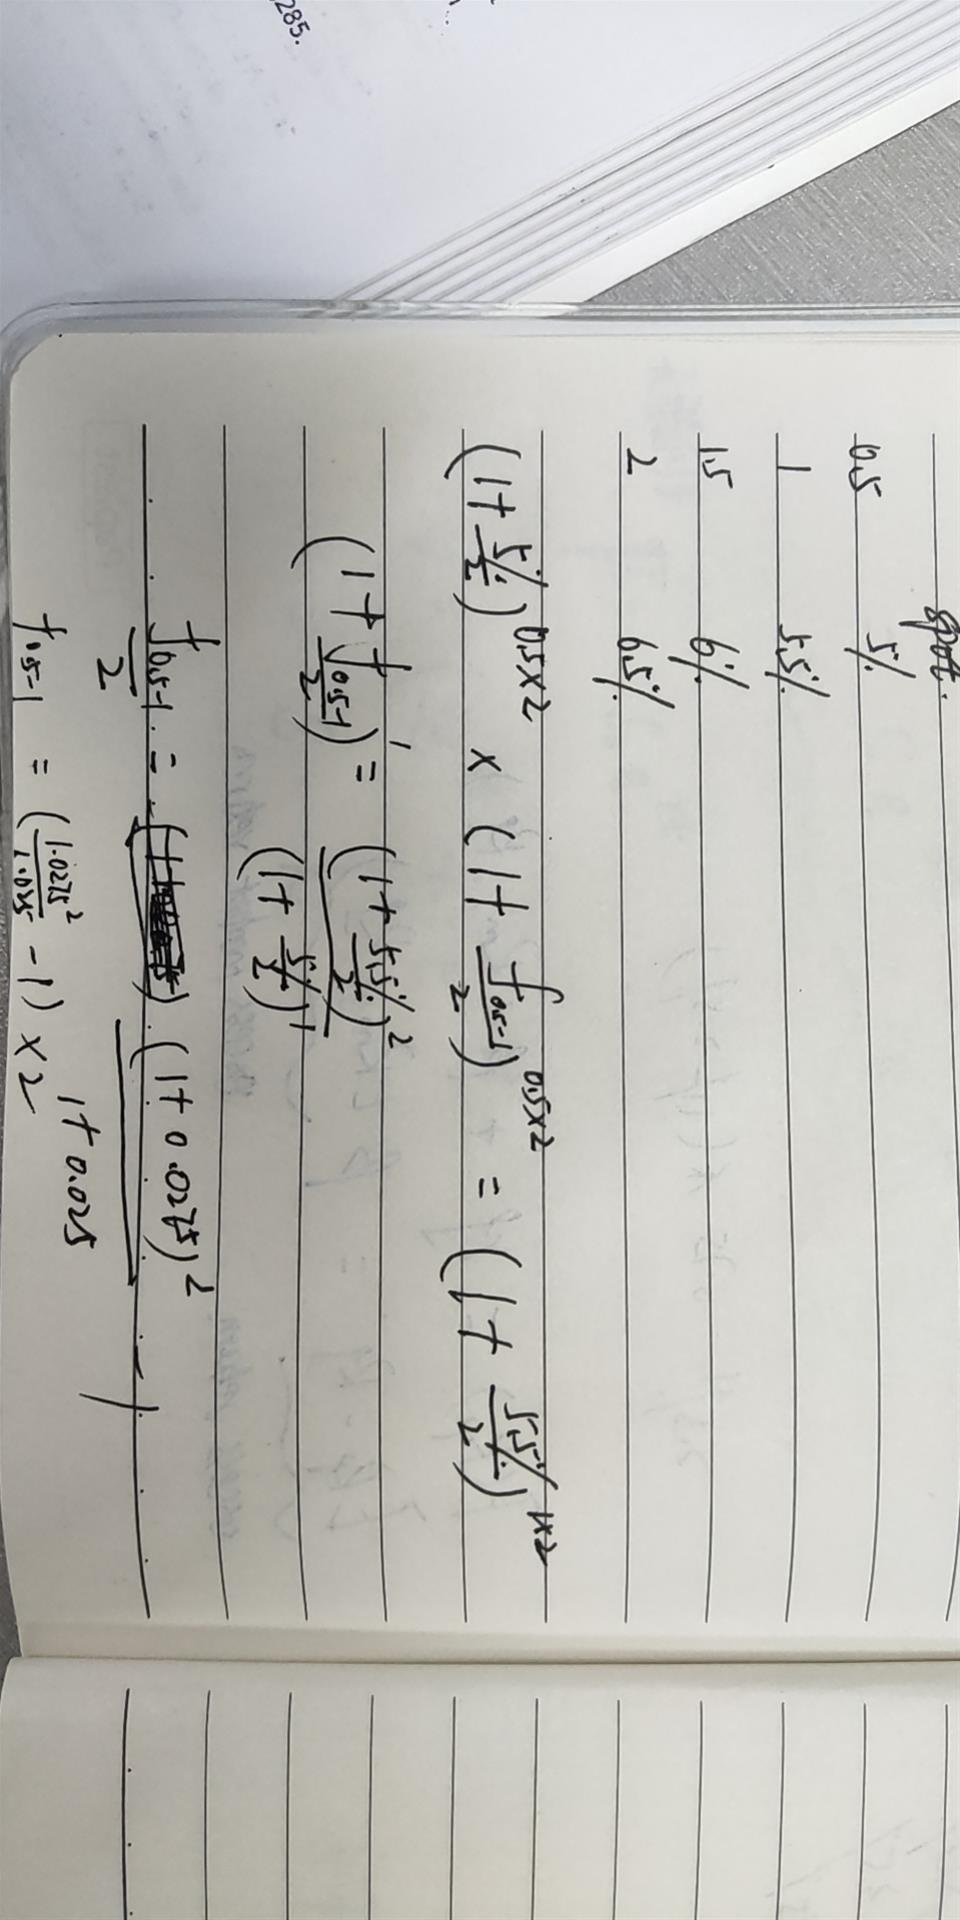 285.
spot.
0.5 5%
1 5.5%
1.5 6%
2 6.5%
(1+ 5%/2)^0.5×2 × (1+ f0.5-1/2)^0.5×2 = (1+ 5.5%/2)^1×2
(1+ f0.5-1/2)^1 = (1+ 5.5%/2)^2 / (1+ 5%/2)^1
f0.5-1/2 = (1+0.0275)^2 / 1+0.025 - 1
f0.5-1 = (1.0275^2/1.025 - 1) × 2